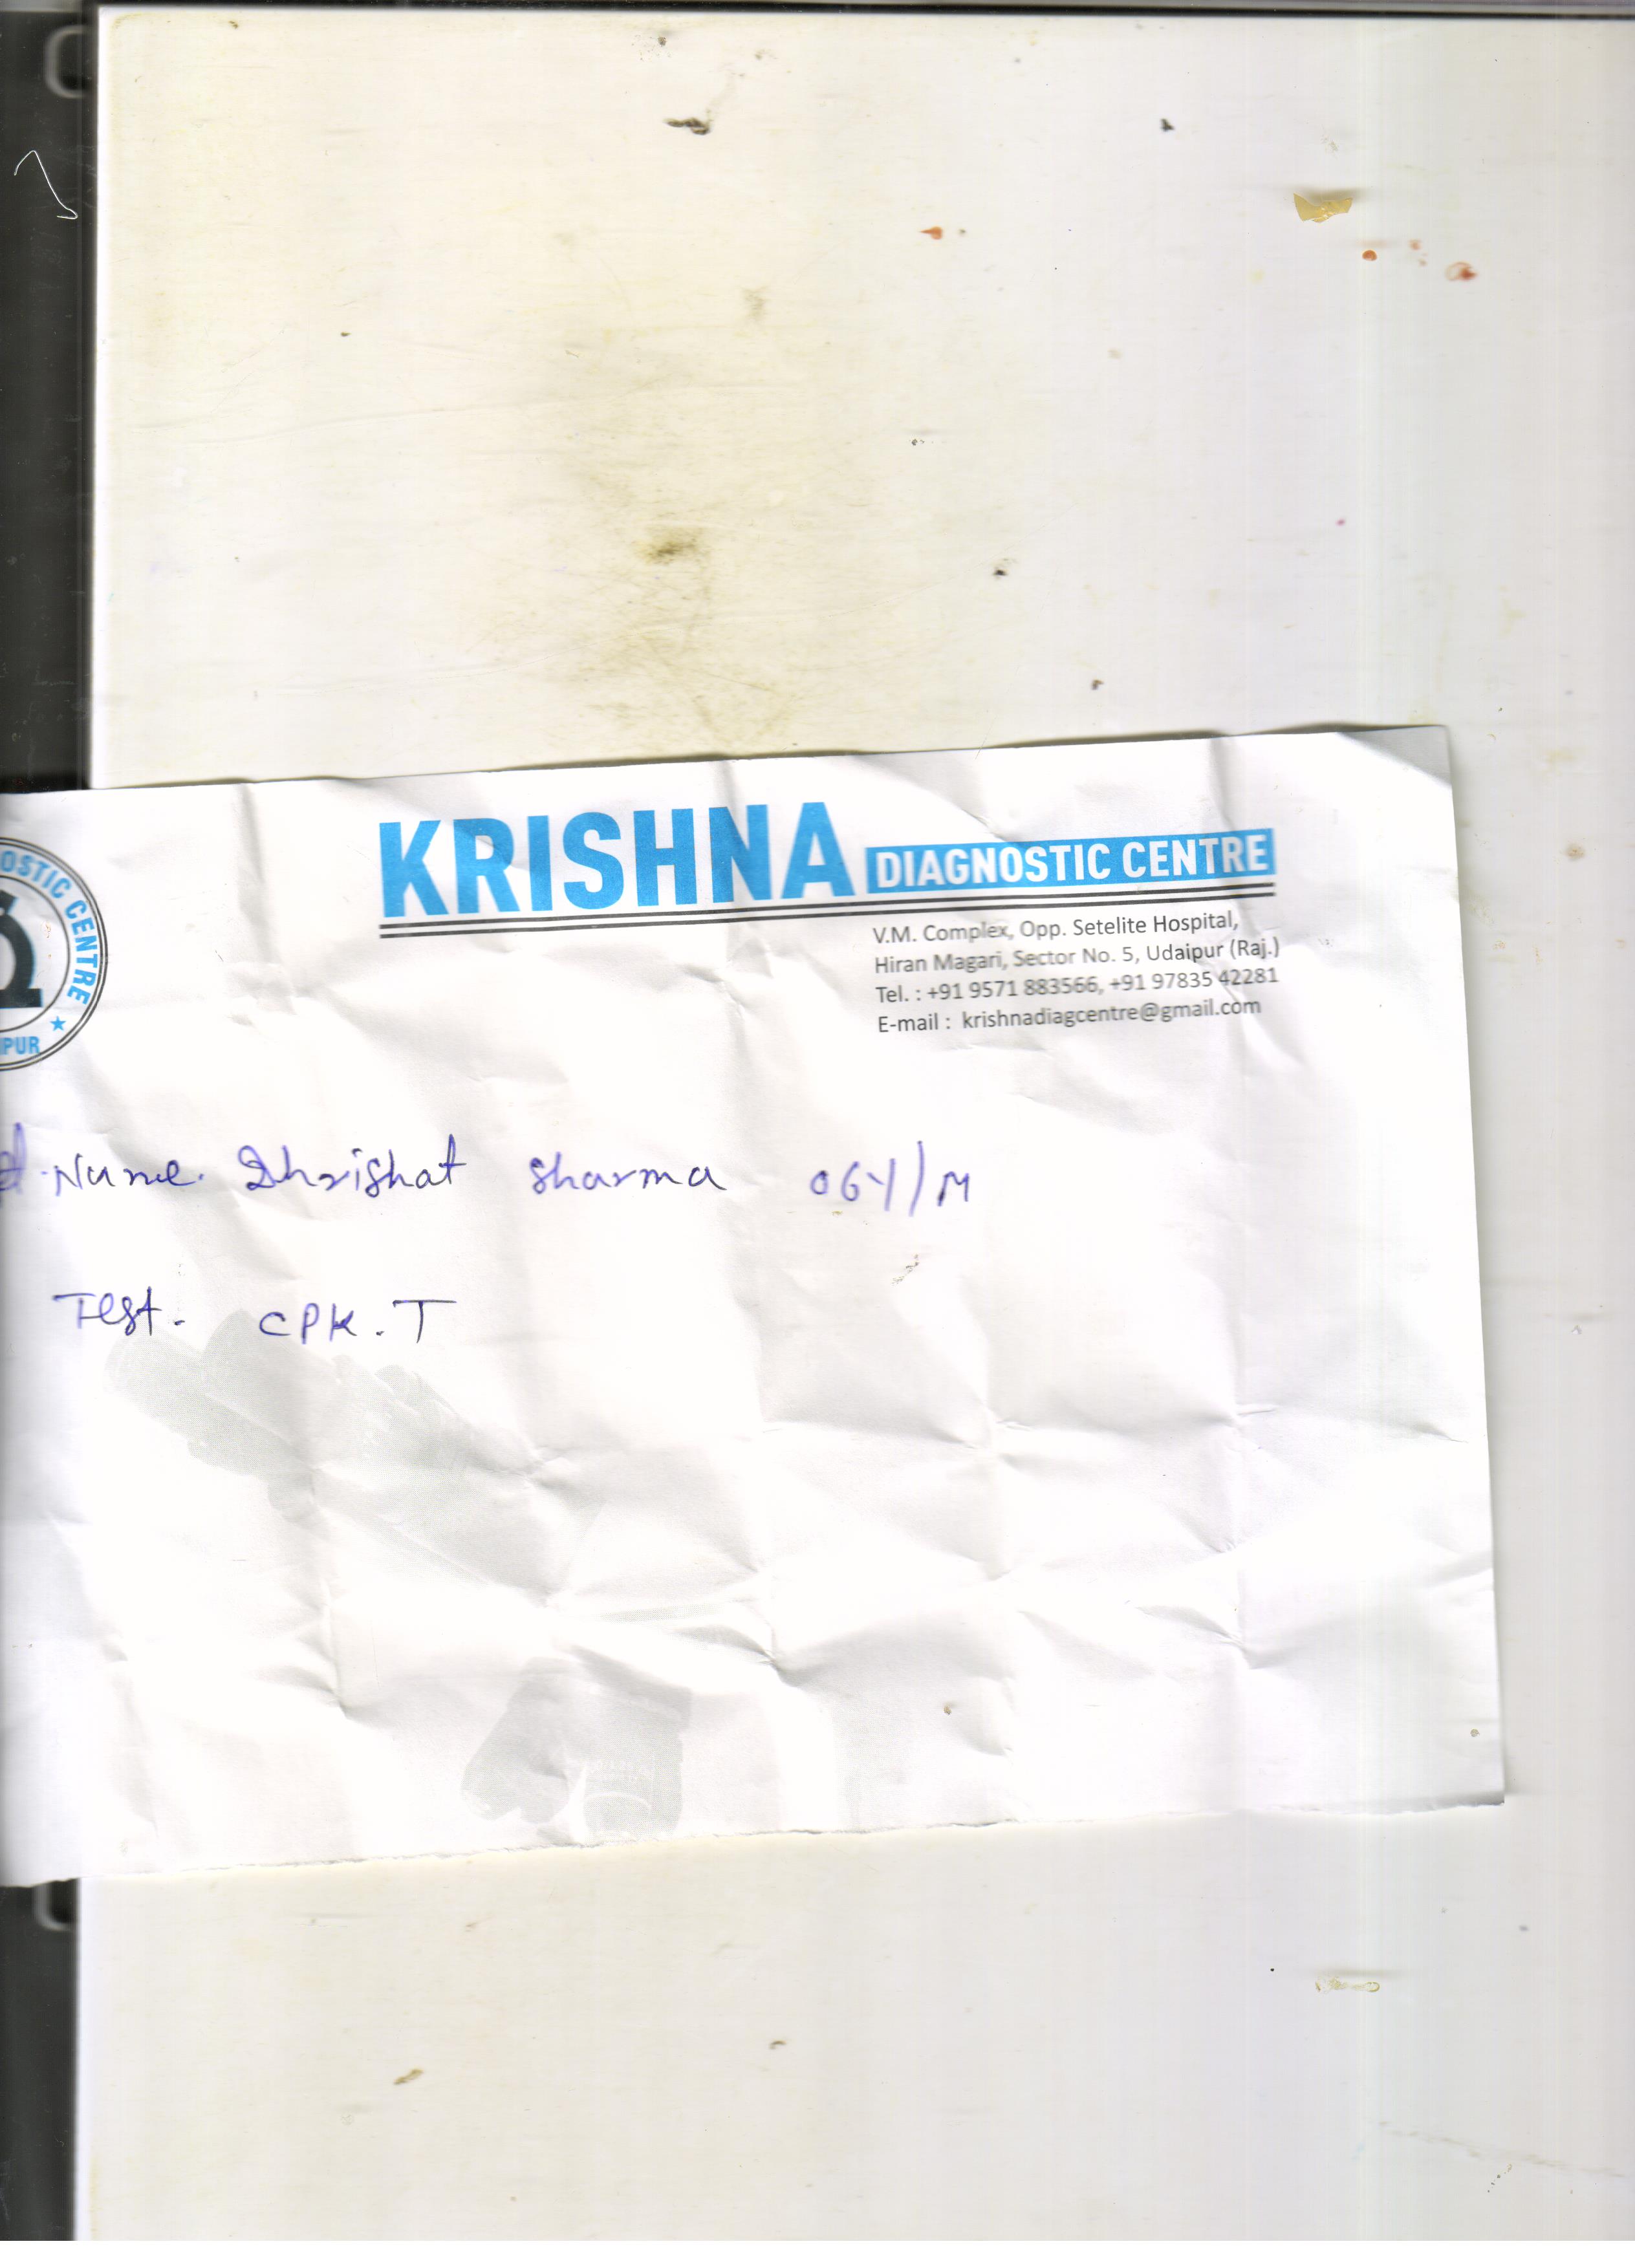 KRISHNA DIAGNOSTIC CENTRE
V.M. Complex, Opp. Setelite Hospital,
Hiran Magari, Sector No. 5, Udaipur (Raj.)
Tel. : +91 9571 883566, +91 97835 42281
E-mail : krishnadiagcentre@gmail.com
OSTIC CENTRE
IPUR
Name. Dhrishat Sharma 06Y/M
Test. CPK.T